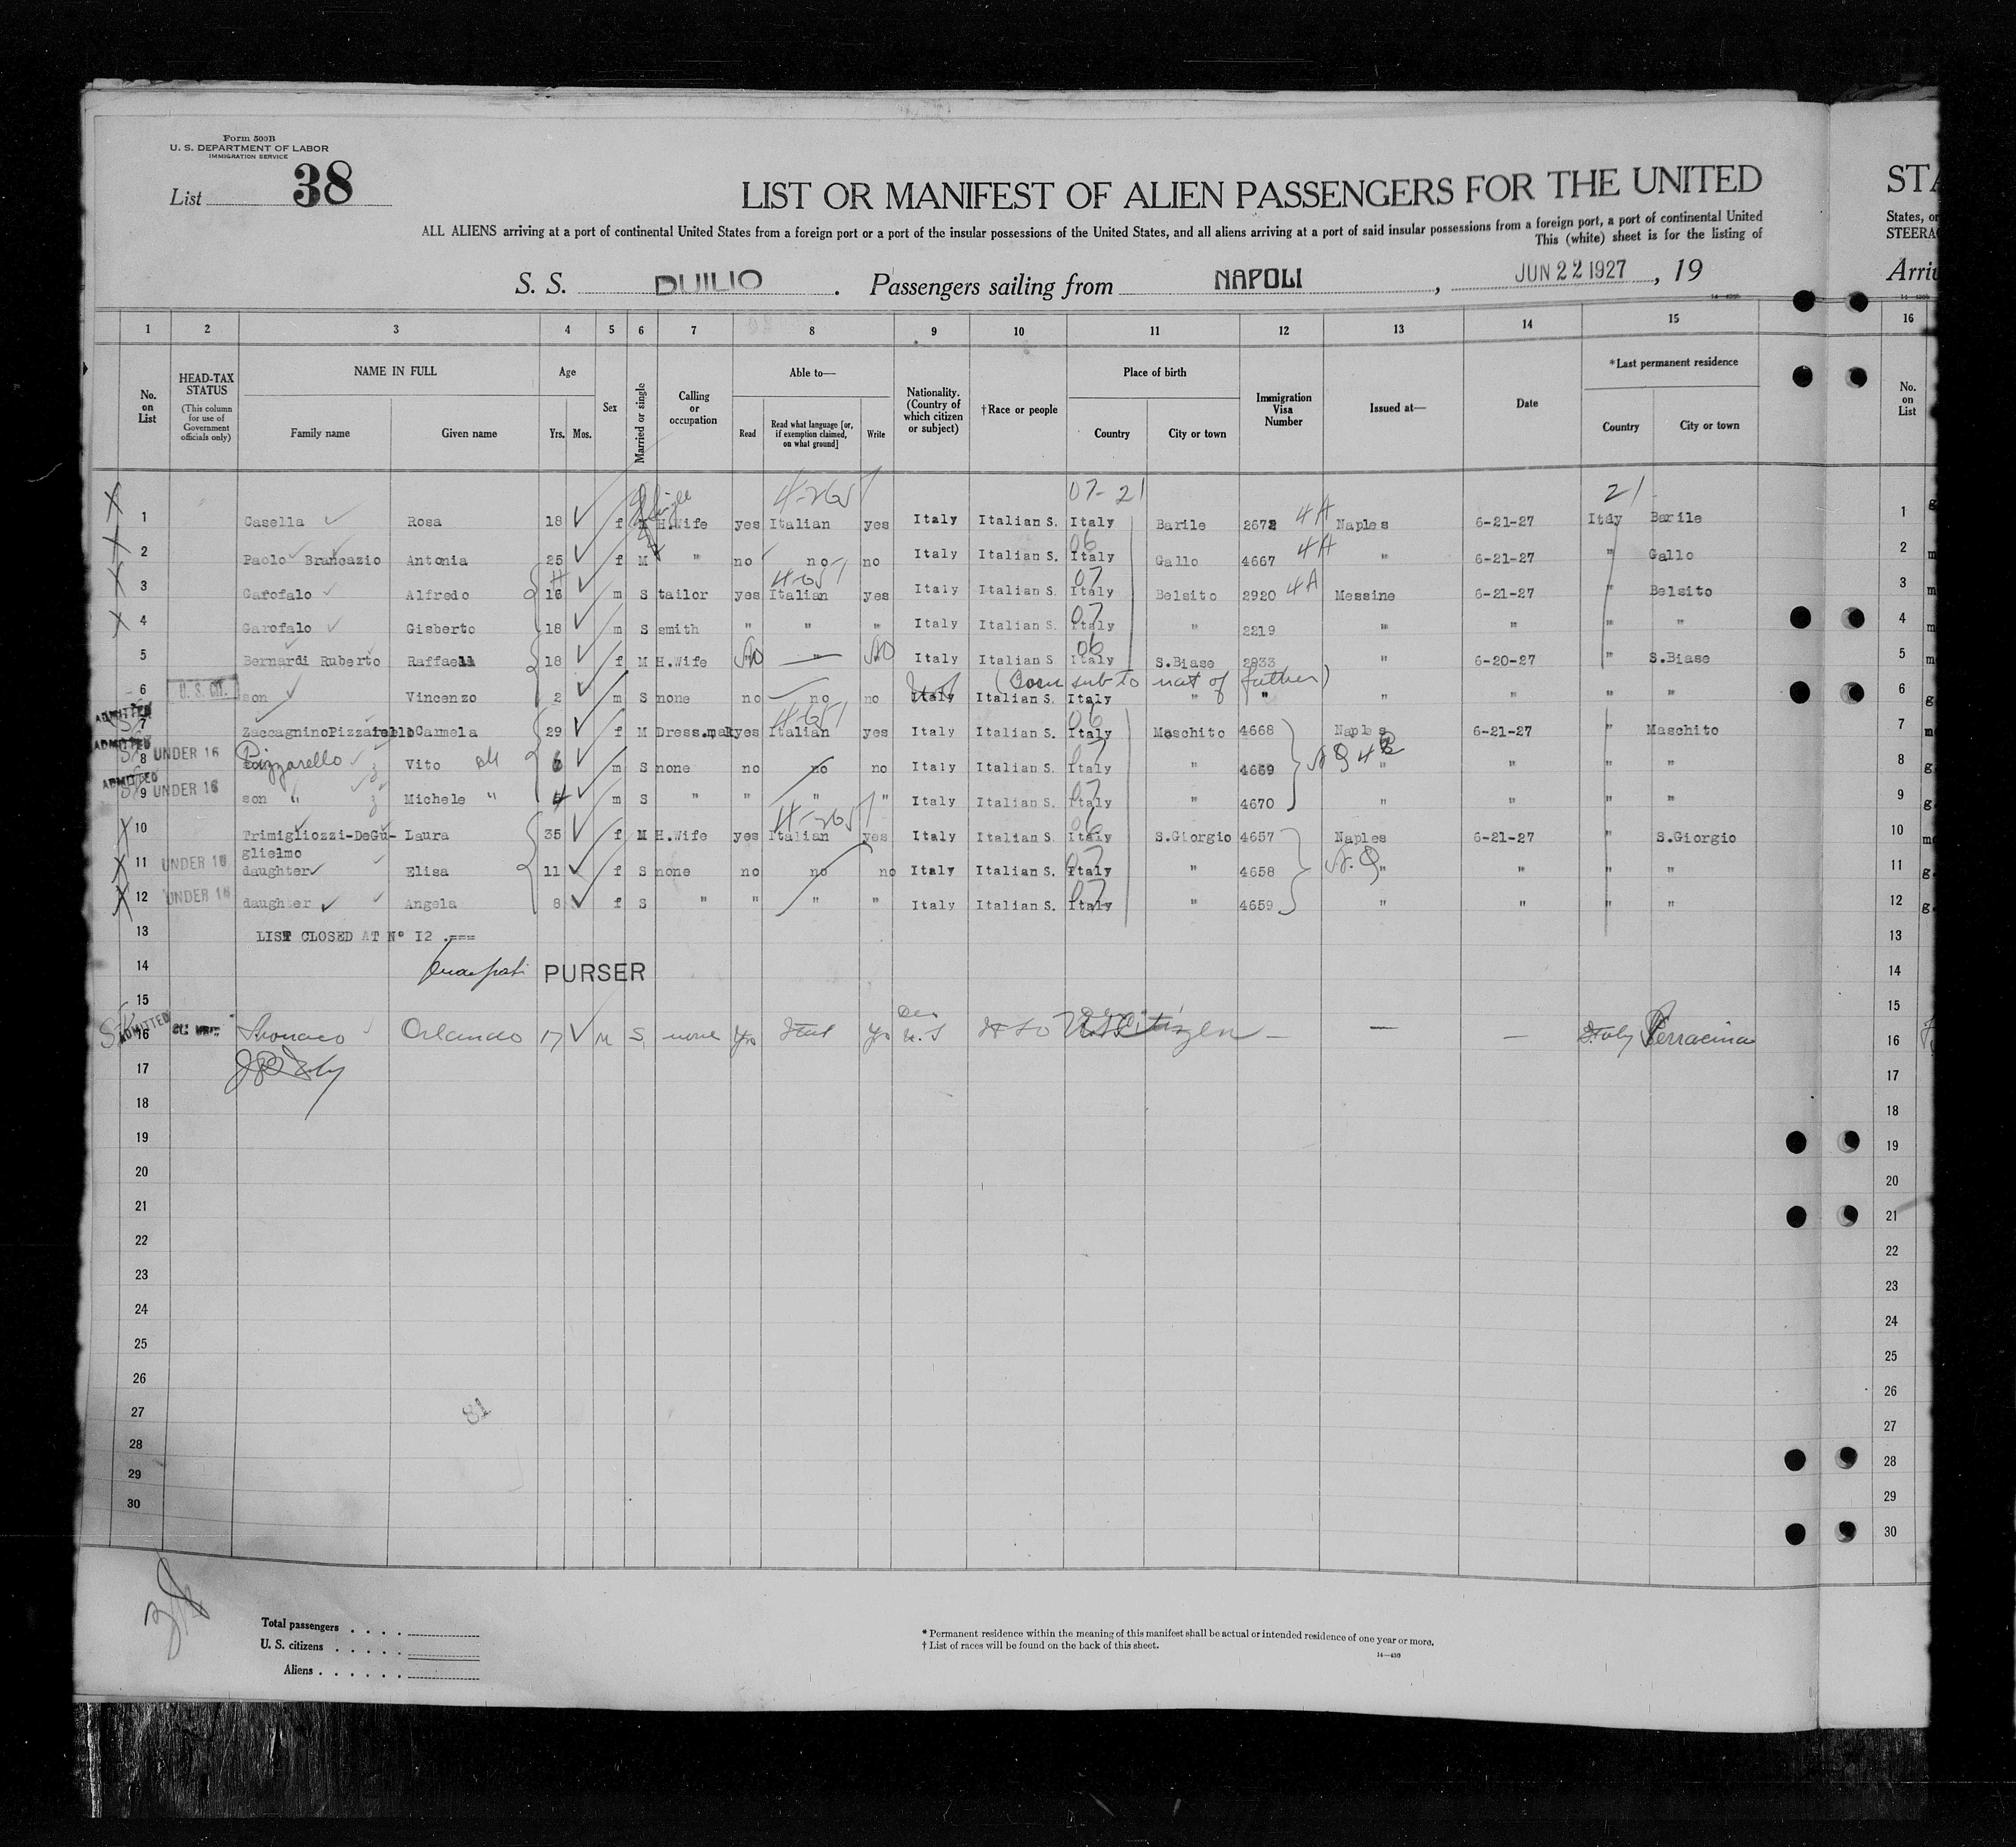 Form 500B
U. S. DEPARTMENT OF LABOR
IMMIGRATION SERVICE
List 38
LIST OR MANIFEST OF ALIEN PASSENGERS FOR THE UNITED
ALL ALIENS arriving at a port of continental United States from a foreign port or a port of the insular possessions of the United States, and all aliens arriving at a port of said insular possessions from a foreign port, a port of continental United
This (white) sheet is for the listing of
STA
States, or
STEERAG
S. S. DUILIO. Passengers sailing from NAPOLI, JUN 22 1927, 19
Arriv
1 2 3 4 5 6 7 8 9 10 11 12 13 14 15 16
No. on List
HEAD-TAX STATUS (This column for use of Government officials only)
NAME IN FULL
Family name Given name
Age
Yrs. Mos.
Sex
Married or single
Calling or occupation
Able to—
Read
Read what language [or, if exemption claimed, on what ground]
Write
Nationality. (Country of which citizen or subject)
†Race or people
Place of birth
Country City or town
Immigration Visa Number
Issued at—
Date
*Last permanent residence
Country City or town
No. on List
07-21 21
1 Casella Rosa 18 f Single H.Wife yes Italian yes Italy Italian S. Italy Barile 2672 4A Naples 6-21-27 Italy Barile 1
2 Paolo Brancazio Antonia 25 f M " no no no Italy Italian S. 06 Italy Gallo 4667 4A " 6-21-27 " Gallo 2
3 Garofalo Alfredo 16 m S tailor yes Italian yes Italy Italian S. 07 Italy Belsito 2920 4A Messine 6-21-27 " Belsito 3
4 Garofalo Gisberto 18 m S smith " " " Italy Italian S. 07 Italy " 2219 " " " " 4
5 Bernardi Ruberto Raffaela 18 f M H.Wife No " No Italy Italian S 06 Italy S.Biase 2933 " 6-20-27 " S.Biase 5
(Born sub to nat of father)
6 U.S. CIT. son Vincenzo 2 m S none no no no Italy Italian S. Italy " " " " " " 6
ADMITTED 7 ZaccagninoPizzarello Carmela 29 f M Dress.mak yes Italian yes Italy Italian S. 06 Italy Maschito 4668 Naples 6-21-27 " Maschito 7
ADMITTED 8 UNDER 16 Pizzarello Vito 6 m S none no no no Italy Italian S. 07 Italy " 4669 NQ " " " " 8
ADMITTED 9 UNDER 16 son " Michele " 4 m S " " " " Italy Italian S. 07 Italy " 4670 " " " " 9
10 Trimigliozzi-DeGu- Laura 35 f M H.Wife yes Italian yes Italy Italian S. 06 Italy S.Giorgio 4657 Naples 6-21-27 " S.Giorgio 10
glielmo
11 UNDER 16 daughter Elisa 11 f S none no no no Italy Italian S. 07 Italy " 4658 N.Q " " " " 11
12 UNDER 16 daughter Angela 8 f S " " " " Italy Italian S. 07 Italy " 4659 " " " " 12
13 LIST CLOSED AT Nº I2 .=== 13
14 PURSER 14
15 15
ADMITTED 16 Orlando 17 M S none Yes Ital Yes U.S It So U.S. Citizen — — — Italy Terracina 16
17 17
18 18
19 19
20 20
21 21
22 22
23 23
24 24
25 25
26 26
27 81 27
28 28
29 29
30 30
38
Total passengers . . . .
U. S. citizens . . . . .
Aliens . . . . . .
* Permanent residence within the meaning of this manifest shall be actual or intended residence of one year or more.
† List of races will be found on the back of this sheet.
14—430